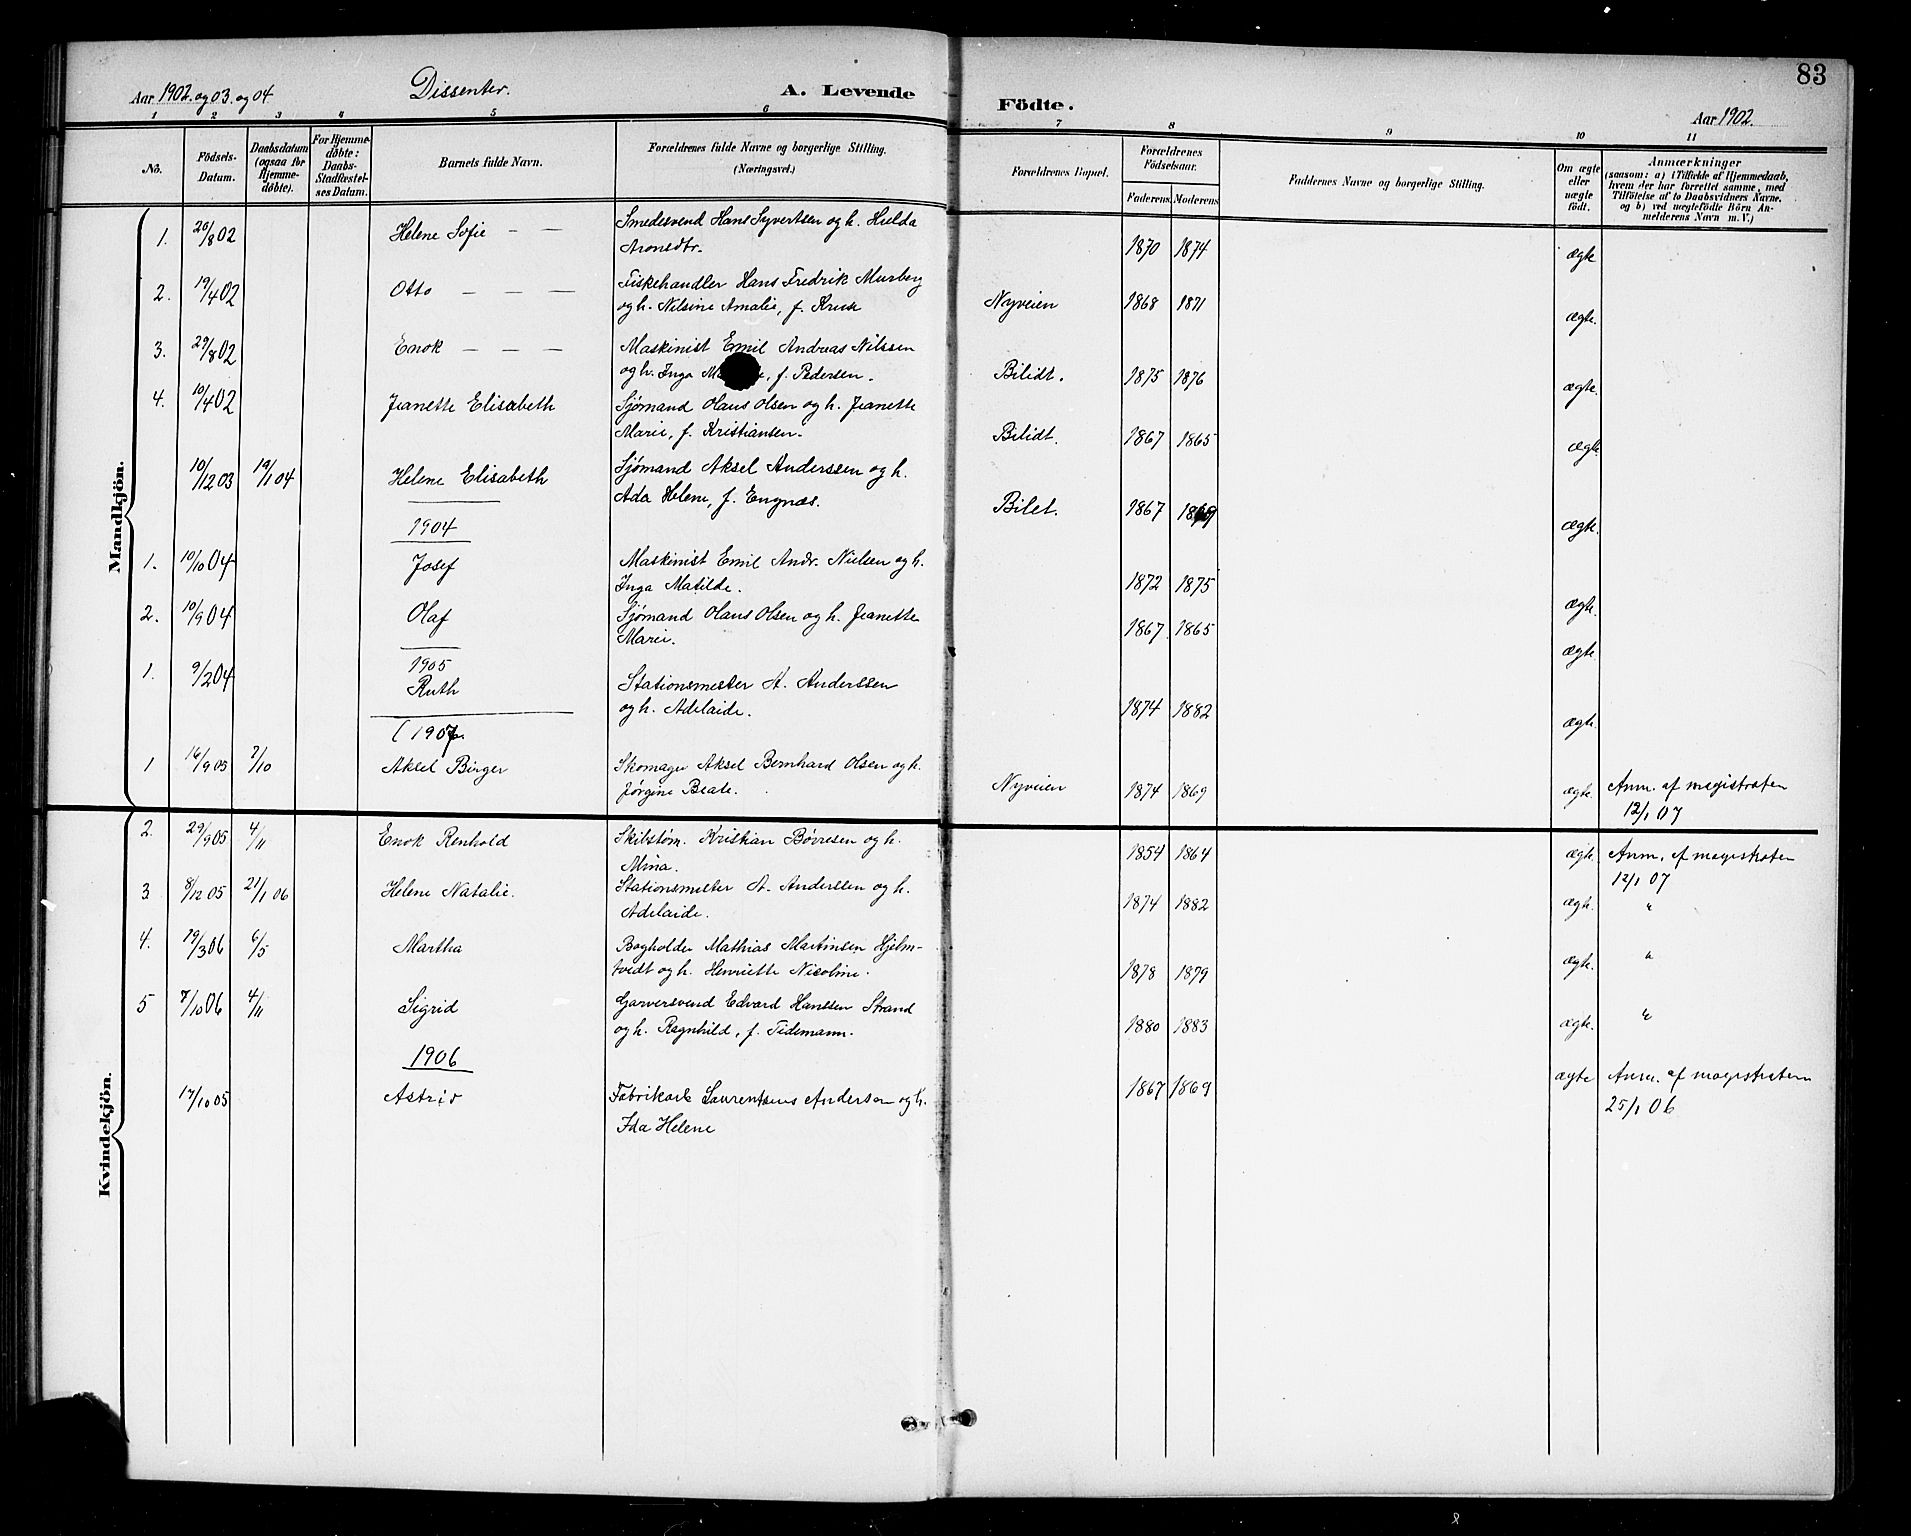 83
Aar 1902. og 03. og 04.
Dissenter.
A. Levende
Födte.
Aar 1902.
1 2 3 4 5 6 7 8 9 10 11
No.
Födsels-Datum.
Daabsdatum (ogsaa for Hjemme-døbte).
For Hjemme-døbte: Daabs-Stadfæstel-ses Datum.
Barnets fulde Navn.
Forældrenes fulde Navne og borgerlige Stilling.
(Næringsvei.)
Forældrenes Bopæl.
Forældrenes Födselsaar.
Faderens. Moderens.
Faddernes Navne og borgerlige Stilling.
Om ægte eller uægte födt.
Anmærkninger
(saasom: a) i Tilfælde af Hjemmedaab,
hvem der har forrettet samme, med
Tilföielse af to Daabsvidners Navne.
og b) ved uægtefödte Börn An-
melderens Navn m. V.)
Mandkjön.
1. 20/8 02 Helene Sofie — — Smedesvend Hans Syvertsen og h. Hulda
Aronsdtr. 1870 1874 ægte
2. 19/4 02 Otto — — — Fiskehandler Hans Fredrik Murberg
og h. Nilsine Amalie, f. Kruse Nyveien 1868 1871 ægte.
3. 29/8 02 Enok — — — Maskinist Emil Andreas Nilssen
og h. Inga f. Pedersen. Bilidt. 1875 1876 ægte.
4. 10/4 02 Jeanette Elisabeth Sjømand Olaus Olsen og h. Jeanette
Marie, f. Kristiansen. Bilidt. 1867 1865 ægte.
10/12 03 19/1 04 Helene Elisabeth Sjømand Aksel Anderssen og h.
Ada Helene, f. Engnæs. Bilet. 1867 1869 ægte.
1904
1. 10/10 04 Josef Maskinist Emil Andr. Nielsen og h.
Inga Matilde. 1872 1875 ægte.
2. 10/9 04 Olaf Sjømand Olaus Olsen og h. Jeanette
Marie. 1867 1865 ægte.
1905
1. 9/2 04 Ruth Stationsmester A. Anderssen
og h. Adelaide. 1874 1882 ægte.
(1907.
1 16/9 05 7/10 Aksel Birger Skomager Aksel Bernhard Olsen og h.
Jørgine Beate. Nyveien 1874 1869 ægte. Anm. af magistraten
12/1 07
Kvindekjön.
2. 29/9 05 4/11 Enok Renhold Skibstøm. Kristian Børresen og h.
Mina. 1854 1864 ægte. Anm. af magistraten
12/1 07
3. 8/12 05 21/1 06 Helene Natalie. Stationsmester A. Anderssen og h.
Adelaide. 1874 1882 ægte. "
4. 19/3 06 6/5 Martha Bogholder Mathias Martinsen Hjelm-
tvedt og h. Henriette Nicoline. 1878 1879 ægte. "
5 7/10 06 4/11 Sigrid Garversvend Edvard Hanssen Strand
og h. Ragnhild, f. Tidemann. 1880 1883 ægte. "
1906
17/10 05 Astrid Fabrikarb. Laurentsius Andersen og h.
Ida Helene 1867 1869 ægte Anm. af magistraten
25/1 06